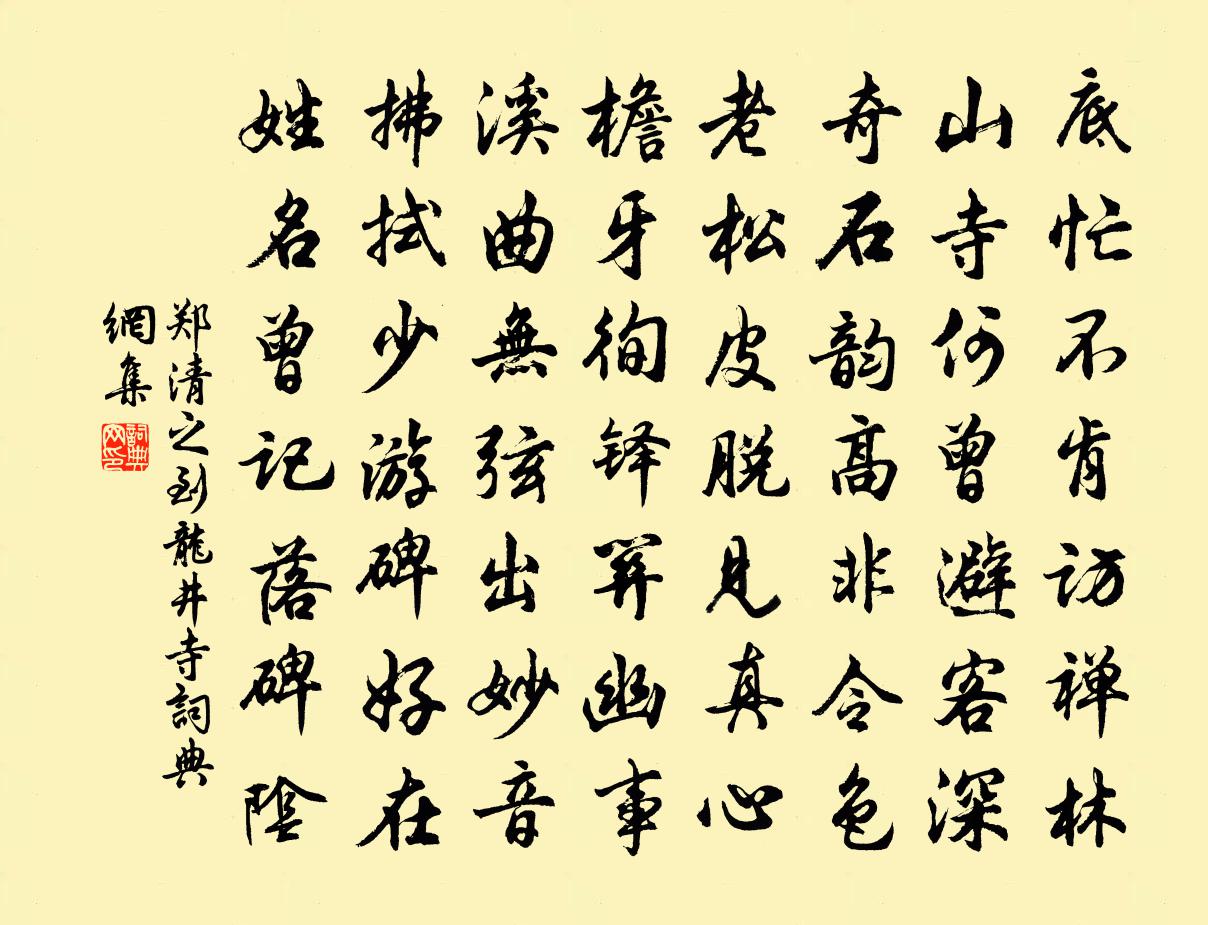 底忙不肯访禅林
山寺何曾避客深
奇石韵高非令色
老松皮脱見真心
檐牙徇铎開幽事
溪曲無弦出妙音
拂拭少游碑好在
姓名曾记落碑陰
郑清之到龍井寺詞典
網集
詞典
网印